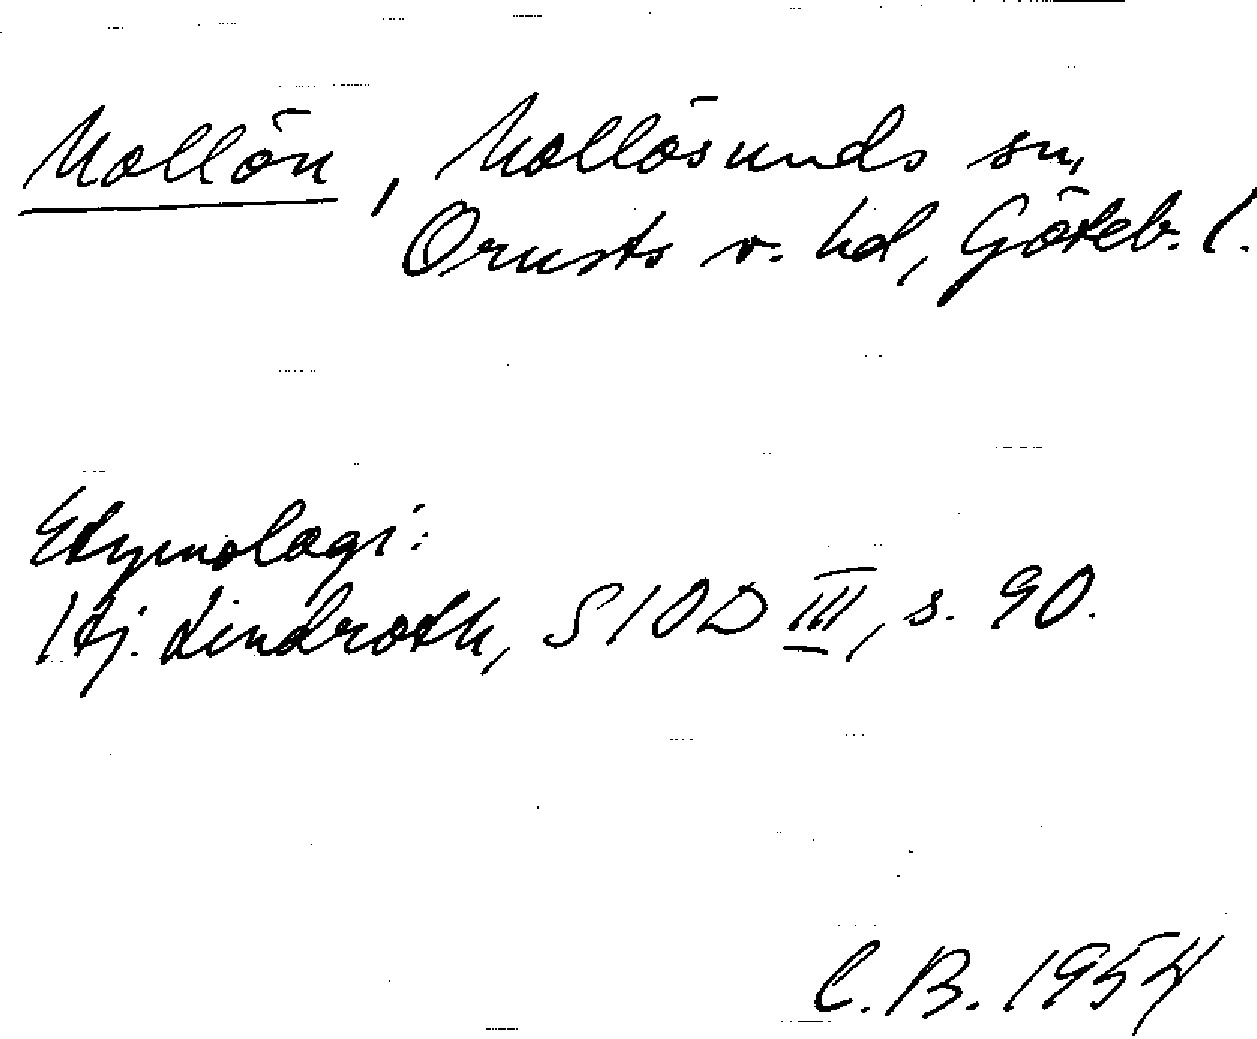 Mollön, Mollösunds sn,
Orusts v. hd, Göteb. l.
Etymologi:
Hj. Lindroth, SIOD III, s. 90.
C.B. 1954